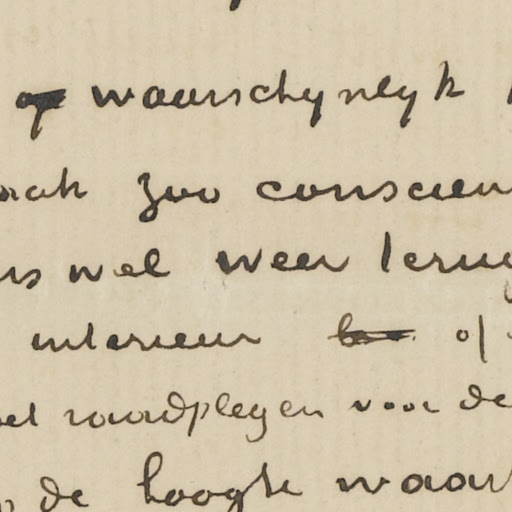 waarschynlyk
zoo conscien
wel weer terug
interieur of
raadplegen voor de
de hoogte waar